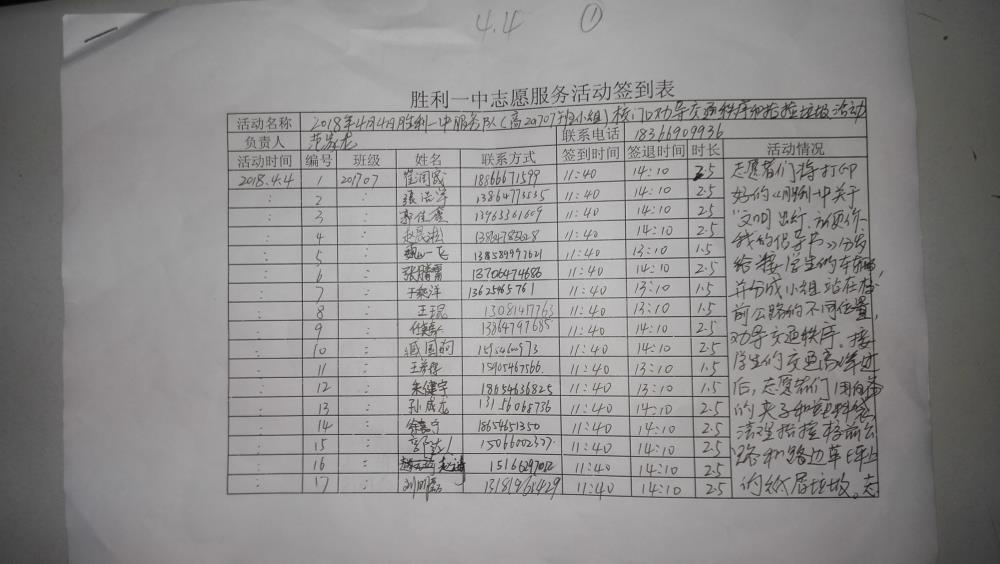 4.4 ①
胜利一中志愿服务活动签到表
活动名称 2018年4月4日胜利一中服务队(高201707班小组)校门口劝导交通秩序和捡垃圾活动
负责人 联系电话 18366909936
活动时间 编号 班级 姓名 联系方式 签到时间 签退时间 时长 活动情况
2018.4.4 1 201707 18866671599 11:40 14:10 2.5 志愿者们将打印
: 2 : 11:40 14:10 2.5 好的《胜利一中关于
: 3 : 11:40 14:10 2.5 "文明出行,方便你
: 4 : 11:40 14:10 2.5 我的倡导书》分发
: 5 : 魏一飞 138589997621 11:40 13:10 1.5 给接学生的车辆,
: 6 : 13706474686 11:40 14:10 2.5 并分成小组站在校
: 7 : 13625465761 11:40 13:10 1.5 前公路的不同位置,
: 8 : 王琨 13081417763 11:40 13:10 1.5 劝导交通秩序。接
: 9 : 13864797685 11:40 14:10 2.5 学生的交通高峰过
: 10 : 11:40 14:10 2.5 后,志愿者们用自备
: 11 : 15905467566 11:40 13:10 1.5 的夹子和塑料袋
: 12 : 朱健宇 18654636825 11:40 13:10 1.5 清理捡拾校前公
: 13 : 孙成龙 13156068736 11:40 14:10 2.5 路和路边车上
: 14 : 18654651350 11:40 14:10 2.5 的纸屑垃圾。志
: 15 : 15066002327 11:40 14:10 2.5
: 16 : 11:40 14:10 2.5
: 17 : 13181961429 11:40 14:10 2.5